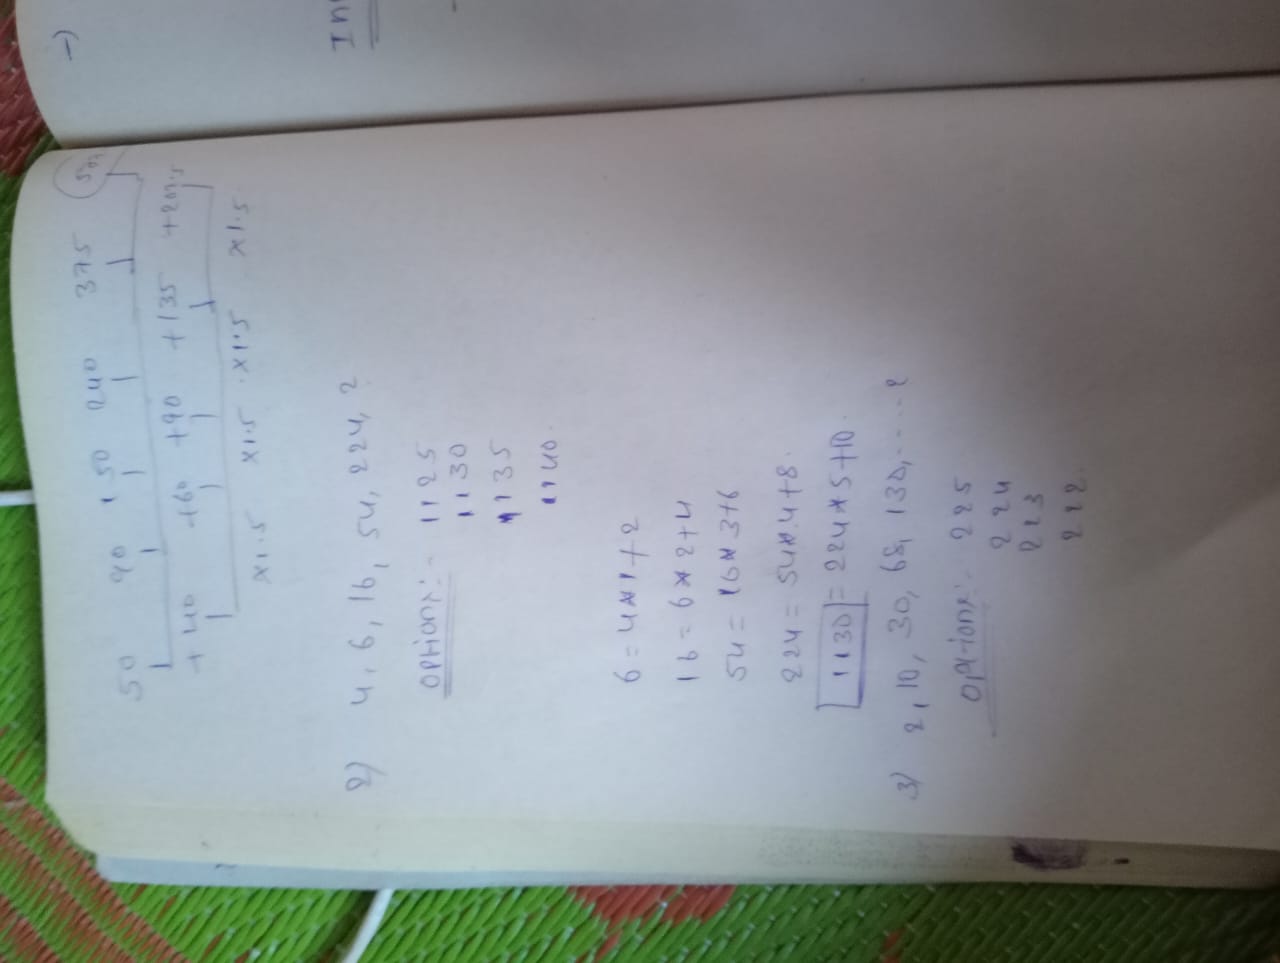 50 90 150 240 375
+40 +60 +90 +135 +202.5
×1.5 ×1.5 ×1.5 ×1.5
2) 4, 6, 16, 54, 224, ?
options:- 1125
1130
1135
1140.
6 = 4×1+2
16 = 6×2+4
54 = 16×3+6
224 = 54×4+8.
1130 = 224×5+10.
3) 2, 10, 30, 68, 130, .... ?
options:- 225
224
223
222.
-)